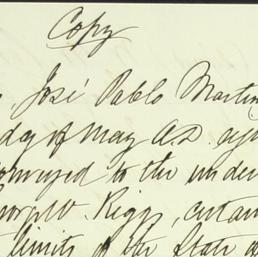 Copy
José Pablo Martin
day of May A.D.
conveyed to the under
George W. Riggs, certain
limits of the State of